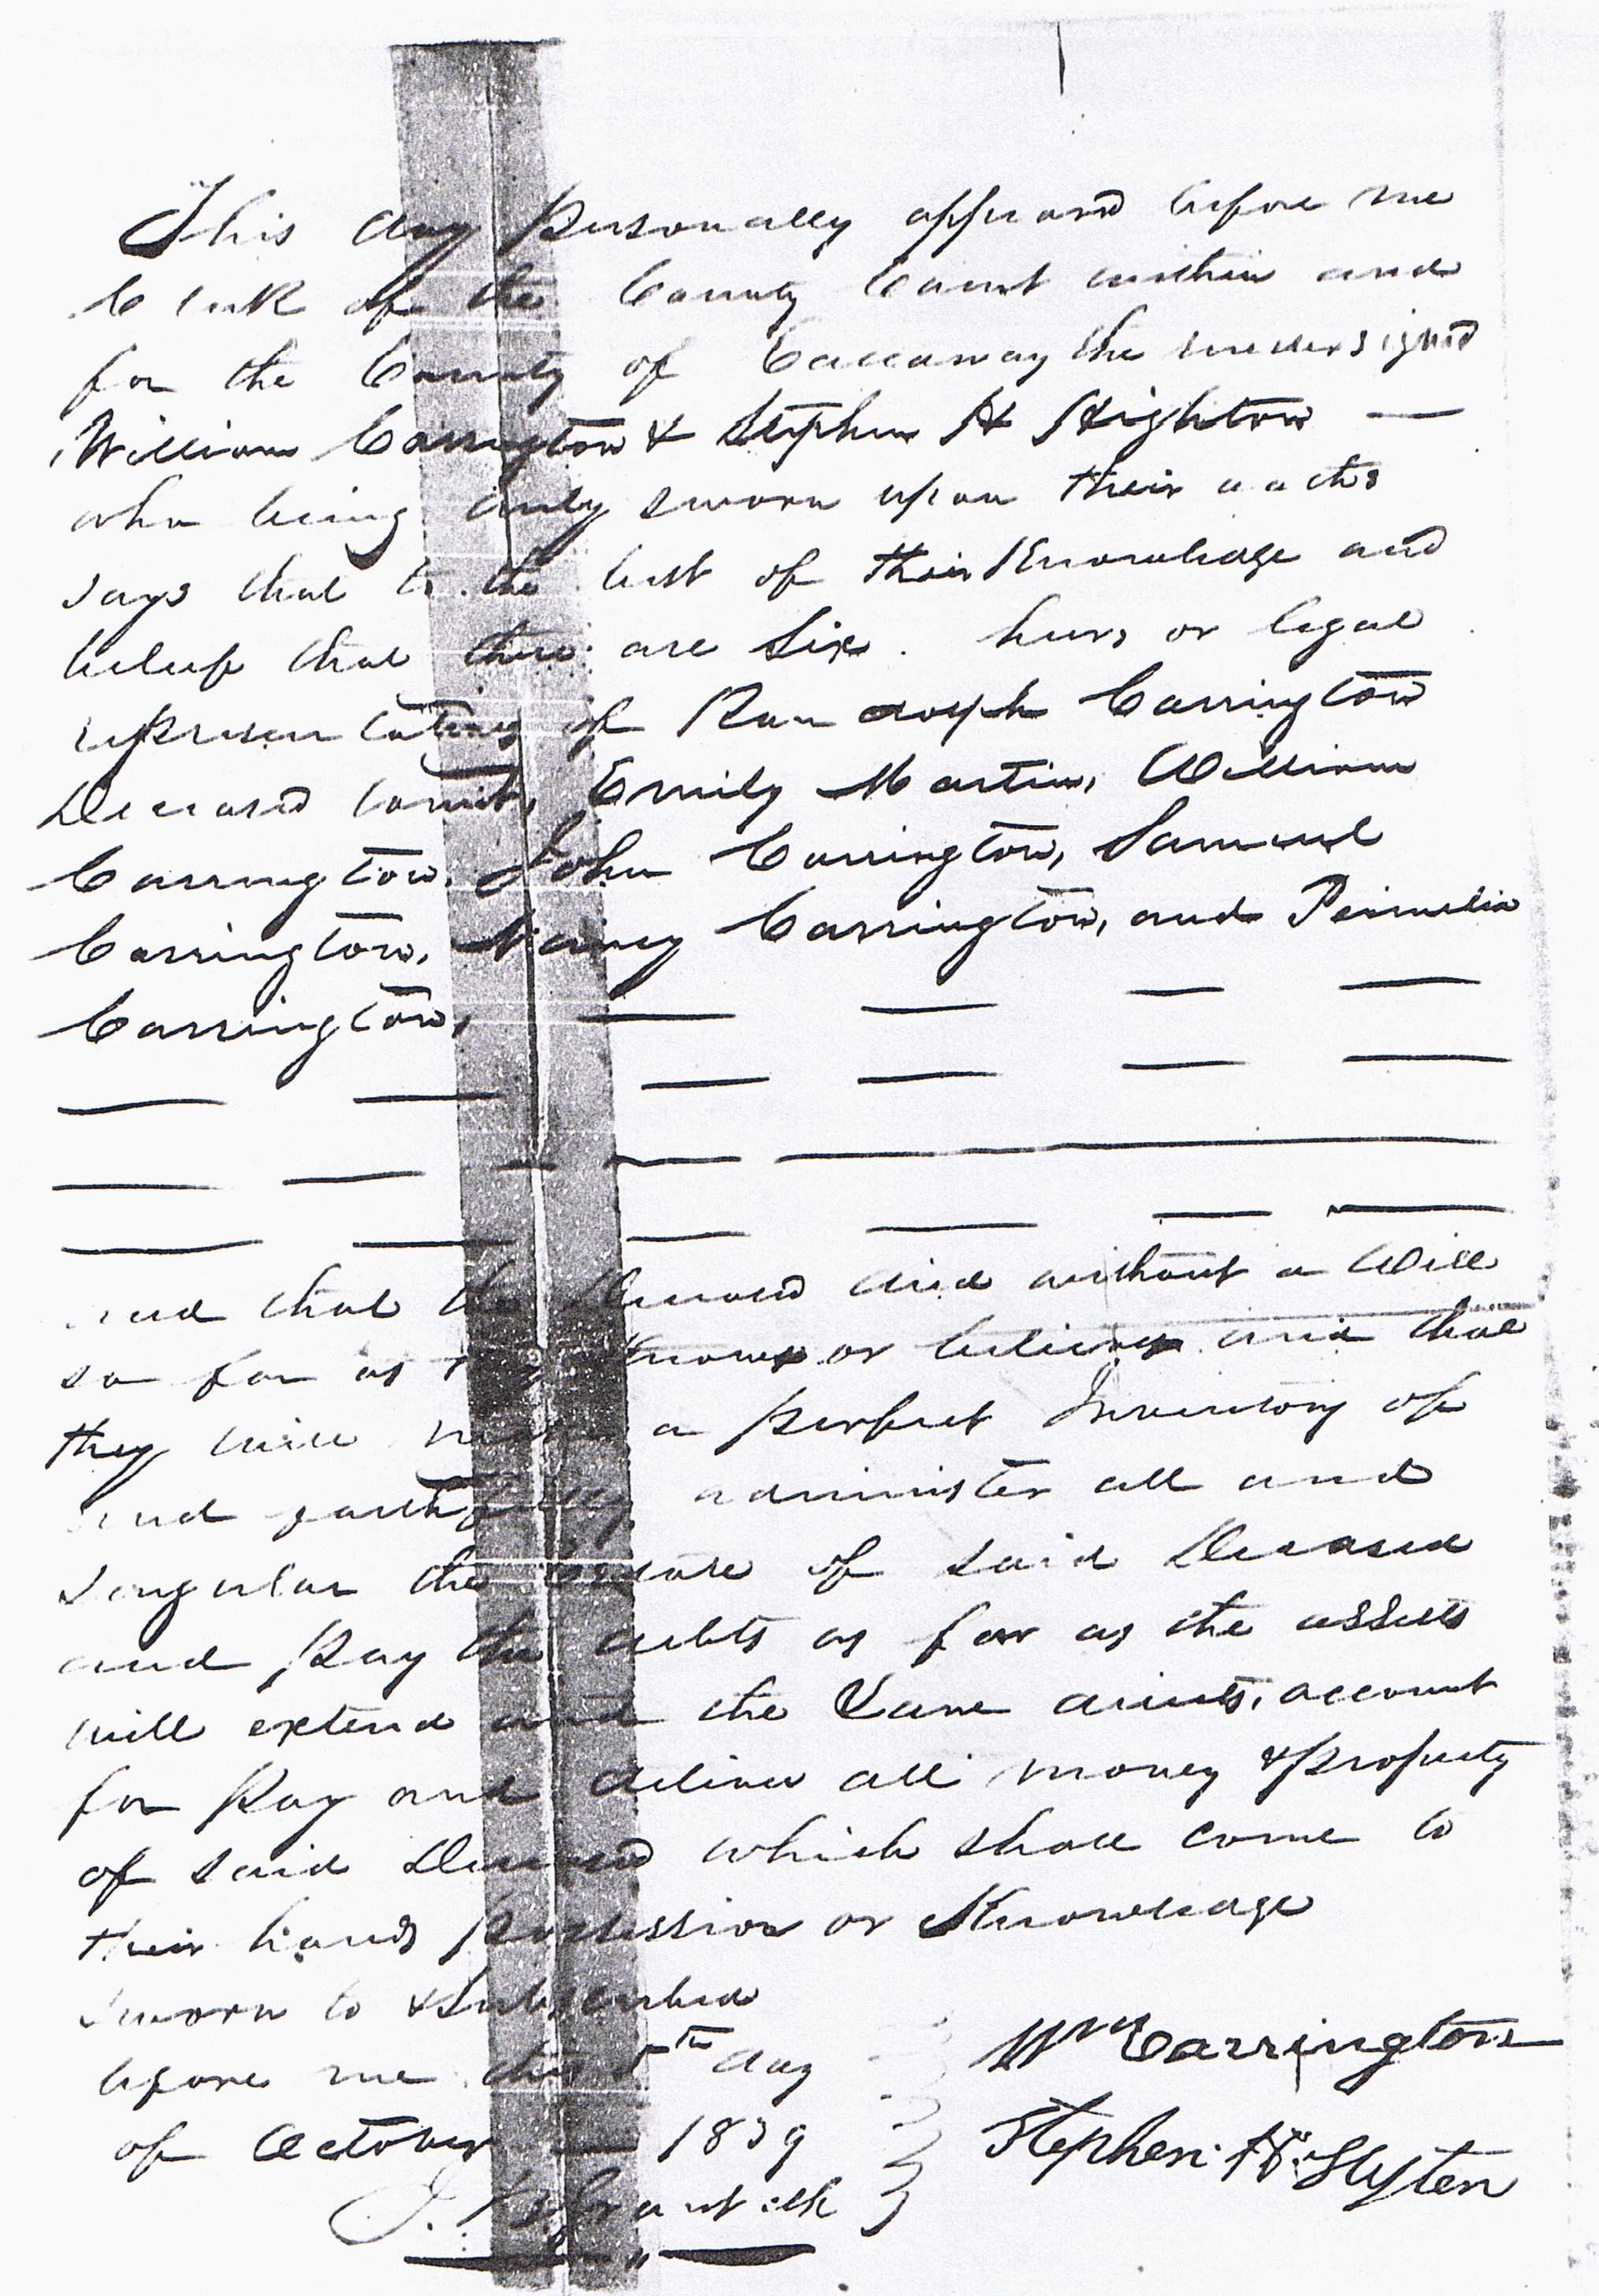 This day personally appeared before me
Clerk of the County Court within and
for the County of Callaway the undersigned
William Carrington & Stephen H Highton —
who being duly sworn upon their oaths
says that to the best of their Knowledge and
beleif that there are Six heirs or legal
representatives of Randolph Carrington
Deceased towit, Emily Martin, William
Carrington, John Carrington, Samuel
Carrington, Nancy Carrington, and Permelia
Carrington,
and that the Deceased died without a Will
so far as they know or believe and that
they will make a perfect Inventory of
and faithfully administer all and
singular the estate of said Deceased
and Pay the debts as far as the assets
will extend and the Law directs, account
for Pay and deliver all money & property
of said Deceased which shall come to
their hands Possession or Knowledge
Sworn to & Subscribed
before me this 5th day
of October — 1839
Wm Carrington
Stephen H. Slyten
clk